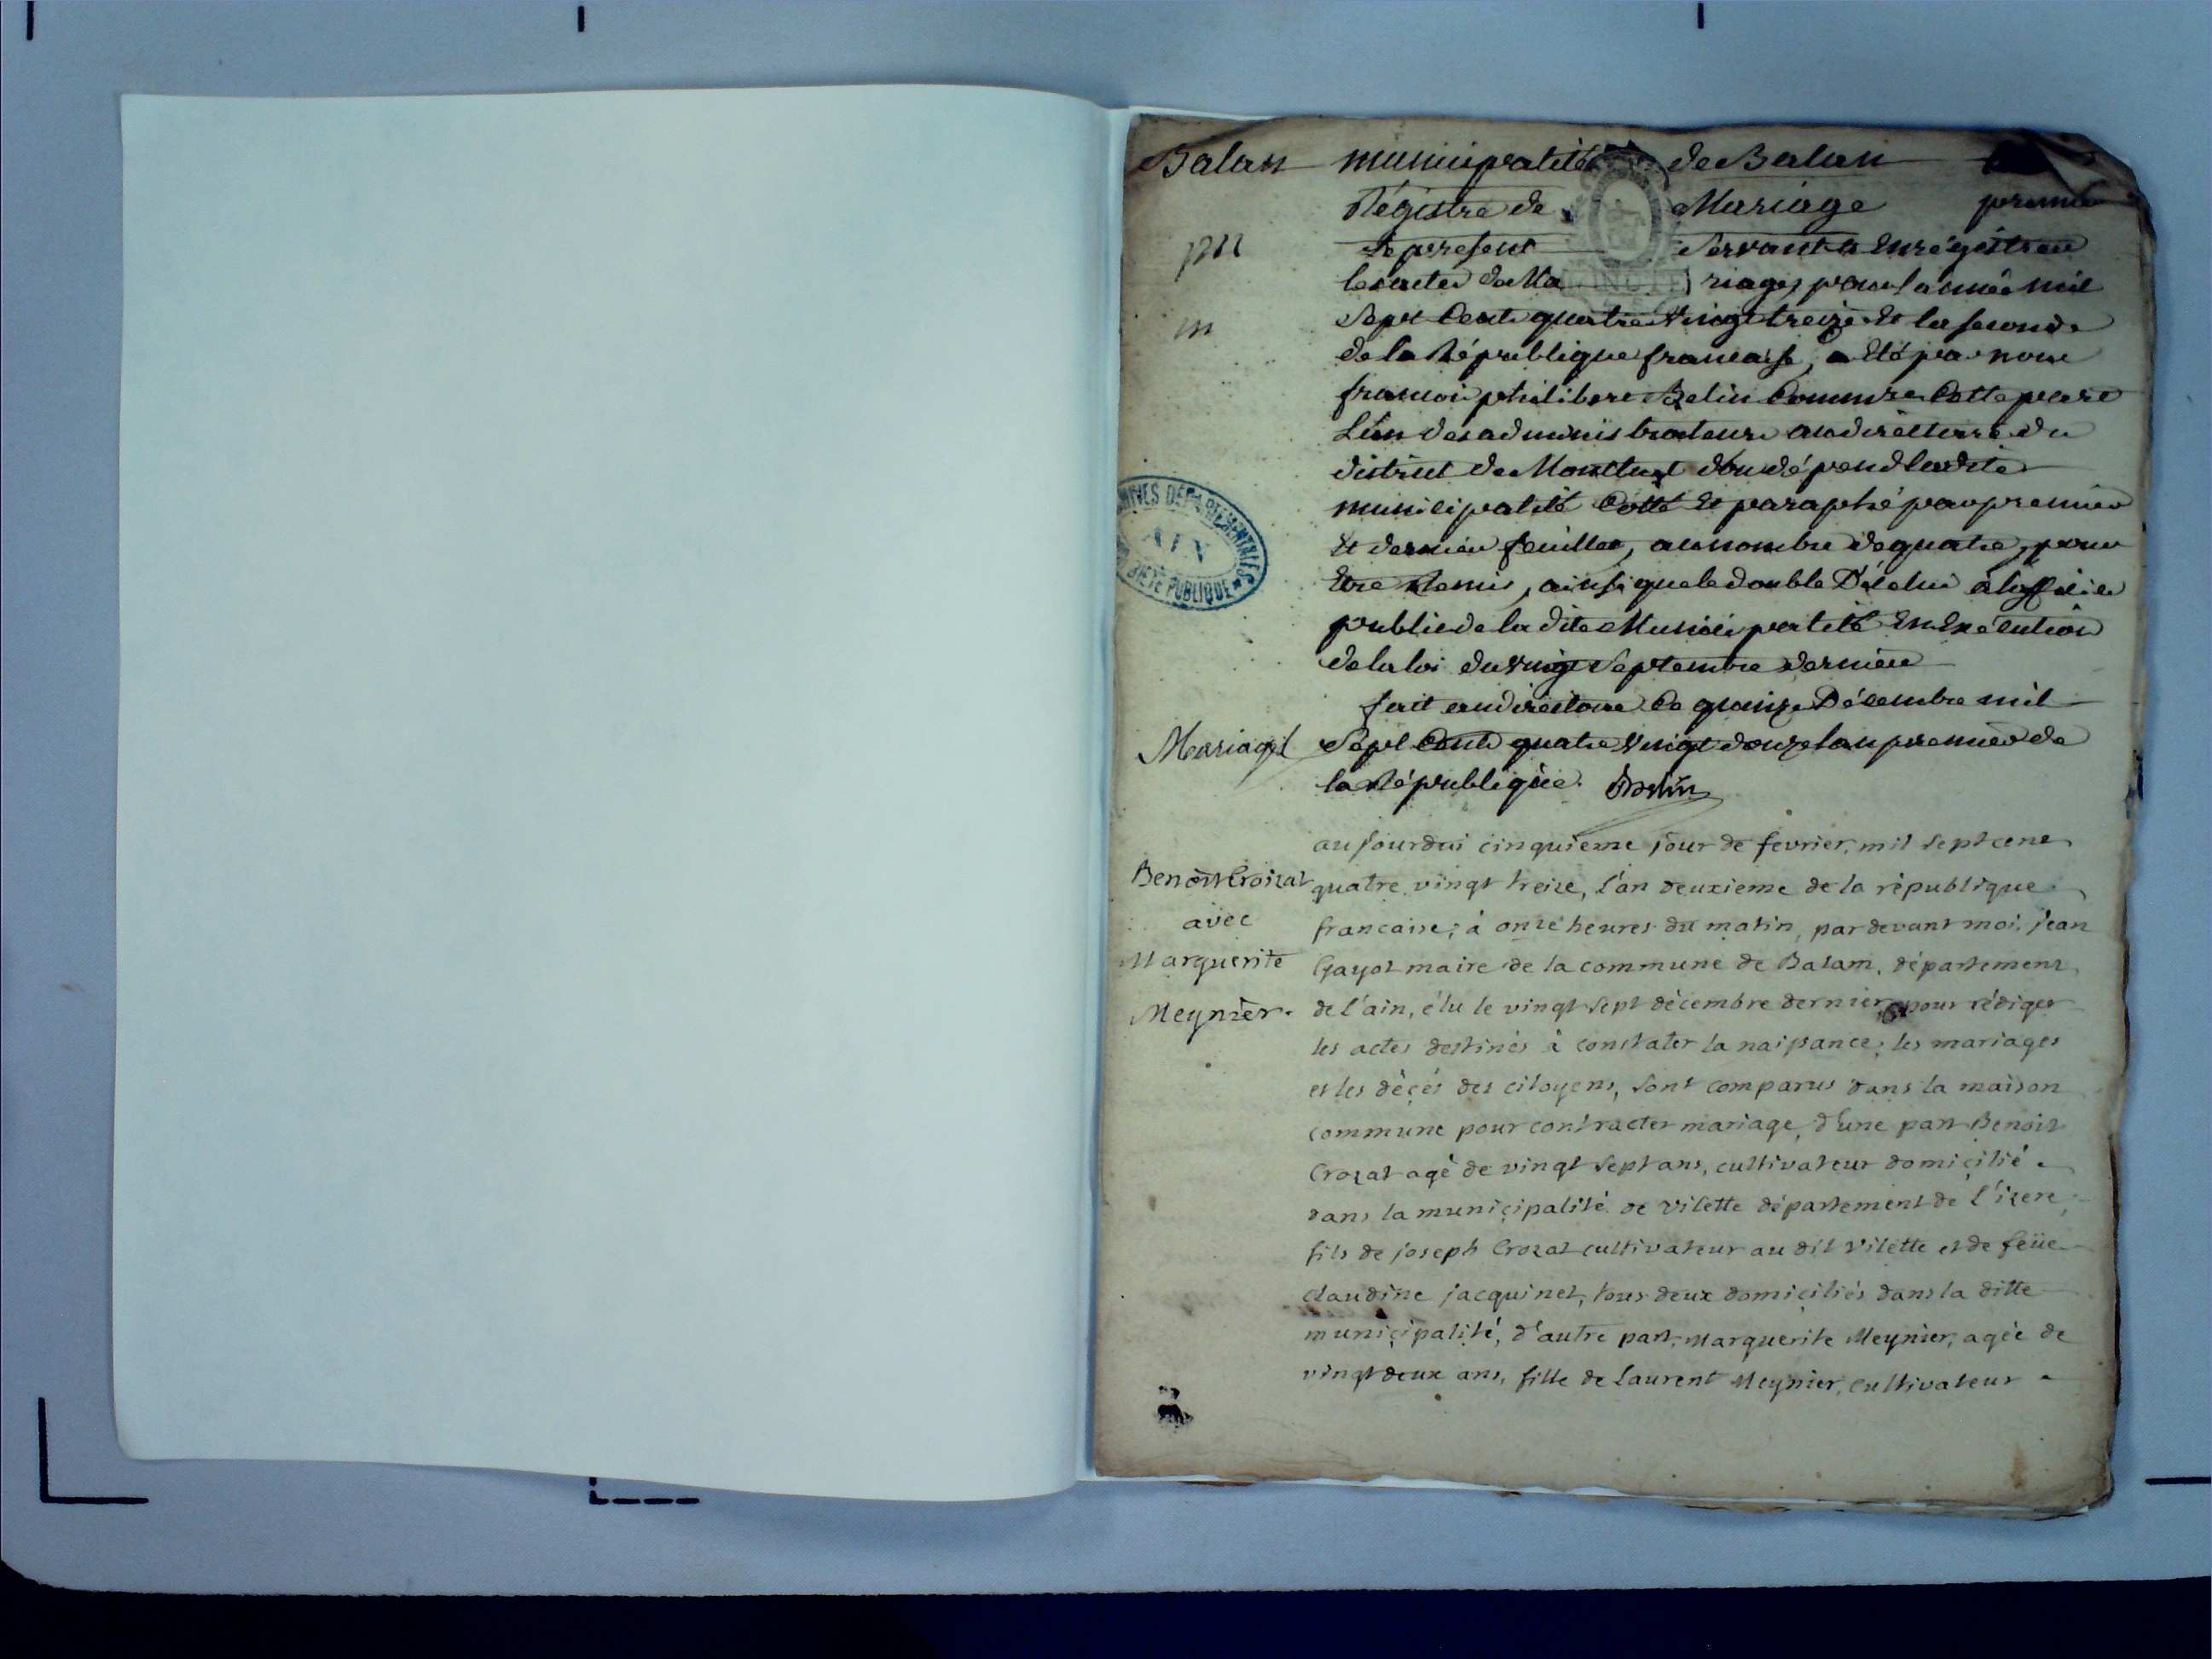 Balan municipalité de Balan
Régistre de Mariage premier
Le present Servant a Enrégistrer
les actes de Ma riages pour l'année mil
Sept Cent quatre Vingt treize et la seconde
de la République francaise, a Eté par nous
francoi philibert Belin Commre
L'un des administrateurs au directoire du
district de Montluel dou dépend ladite
municipalité Cotté et paraphé par premier
et dernier feuillet, au nombre de quatre, pour
Etre Remis, ainsi que le double D'icelui à l'officier
public de la dite Municipalité En Exécution
de la loi du vingt Septembre dernier
fait au directoire Ce quinze Décembre mil
Sept Cent quatre Vingt douze l'an premier de
la République. Belin
Mariages
ARCHIVES DÉPARTEMENTALES
AIN
PUBLIQUE
Benoit Croizat
avec
Marguerite
Meynier.
aujourdui cinquieme jour de fevrier, mil sept cent
quatre vingt treize, l'an deuxieme de la république
francaise; à onze heures du matin, par devant moi, jean
Gayot maire de la commune de Balam, département
de l'ain, élu le vingt sept décembre dernier pour rédiger
les actes destinés à constater la naissance, les mariages
et les décés des citoyens, sont comparus dans la maison
commune pour contracter mariage, d'une part Benoit
Crozat agé de vingt sept ans, cultivateur domicilié
dans la municipalité de vilette département de l'izere,
fils de joseph Crozat cultivateur au dit vilette et de feüe
claudine jacquinet, tous deux domiciliés dans la ditte
municipalité, d'autre part, Marguerite Meynier, agée de
vingt deux ans, fille de Laurent Meynier, cultivateur